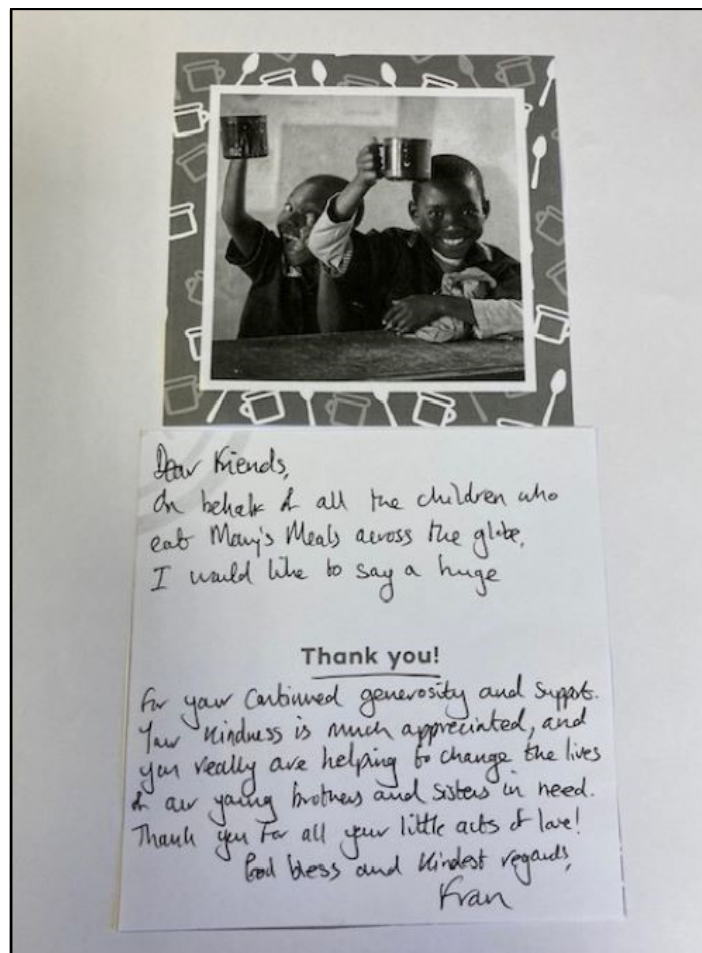 Dear Friends,
On behalf of all the children who
eat Mary's Meals across the globe,
I would like to say a huge
Thank you!
For your continued generosity and support.
Your kindness is much appreciated, and
you really are helping to change the lives
of our young brothers and sisters in need.
Thank you for all your little acts of love!
God bless and kindest regards,
Fran